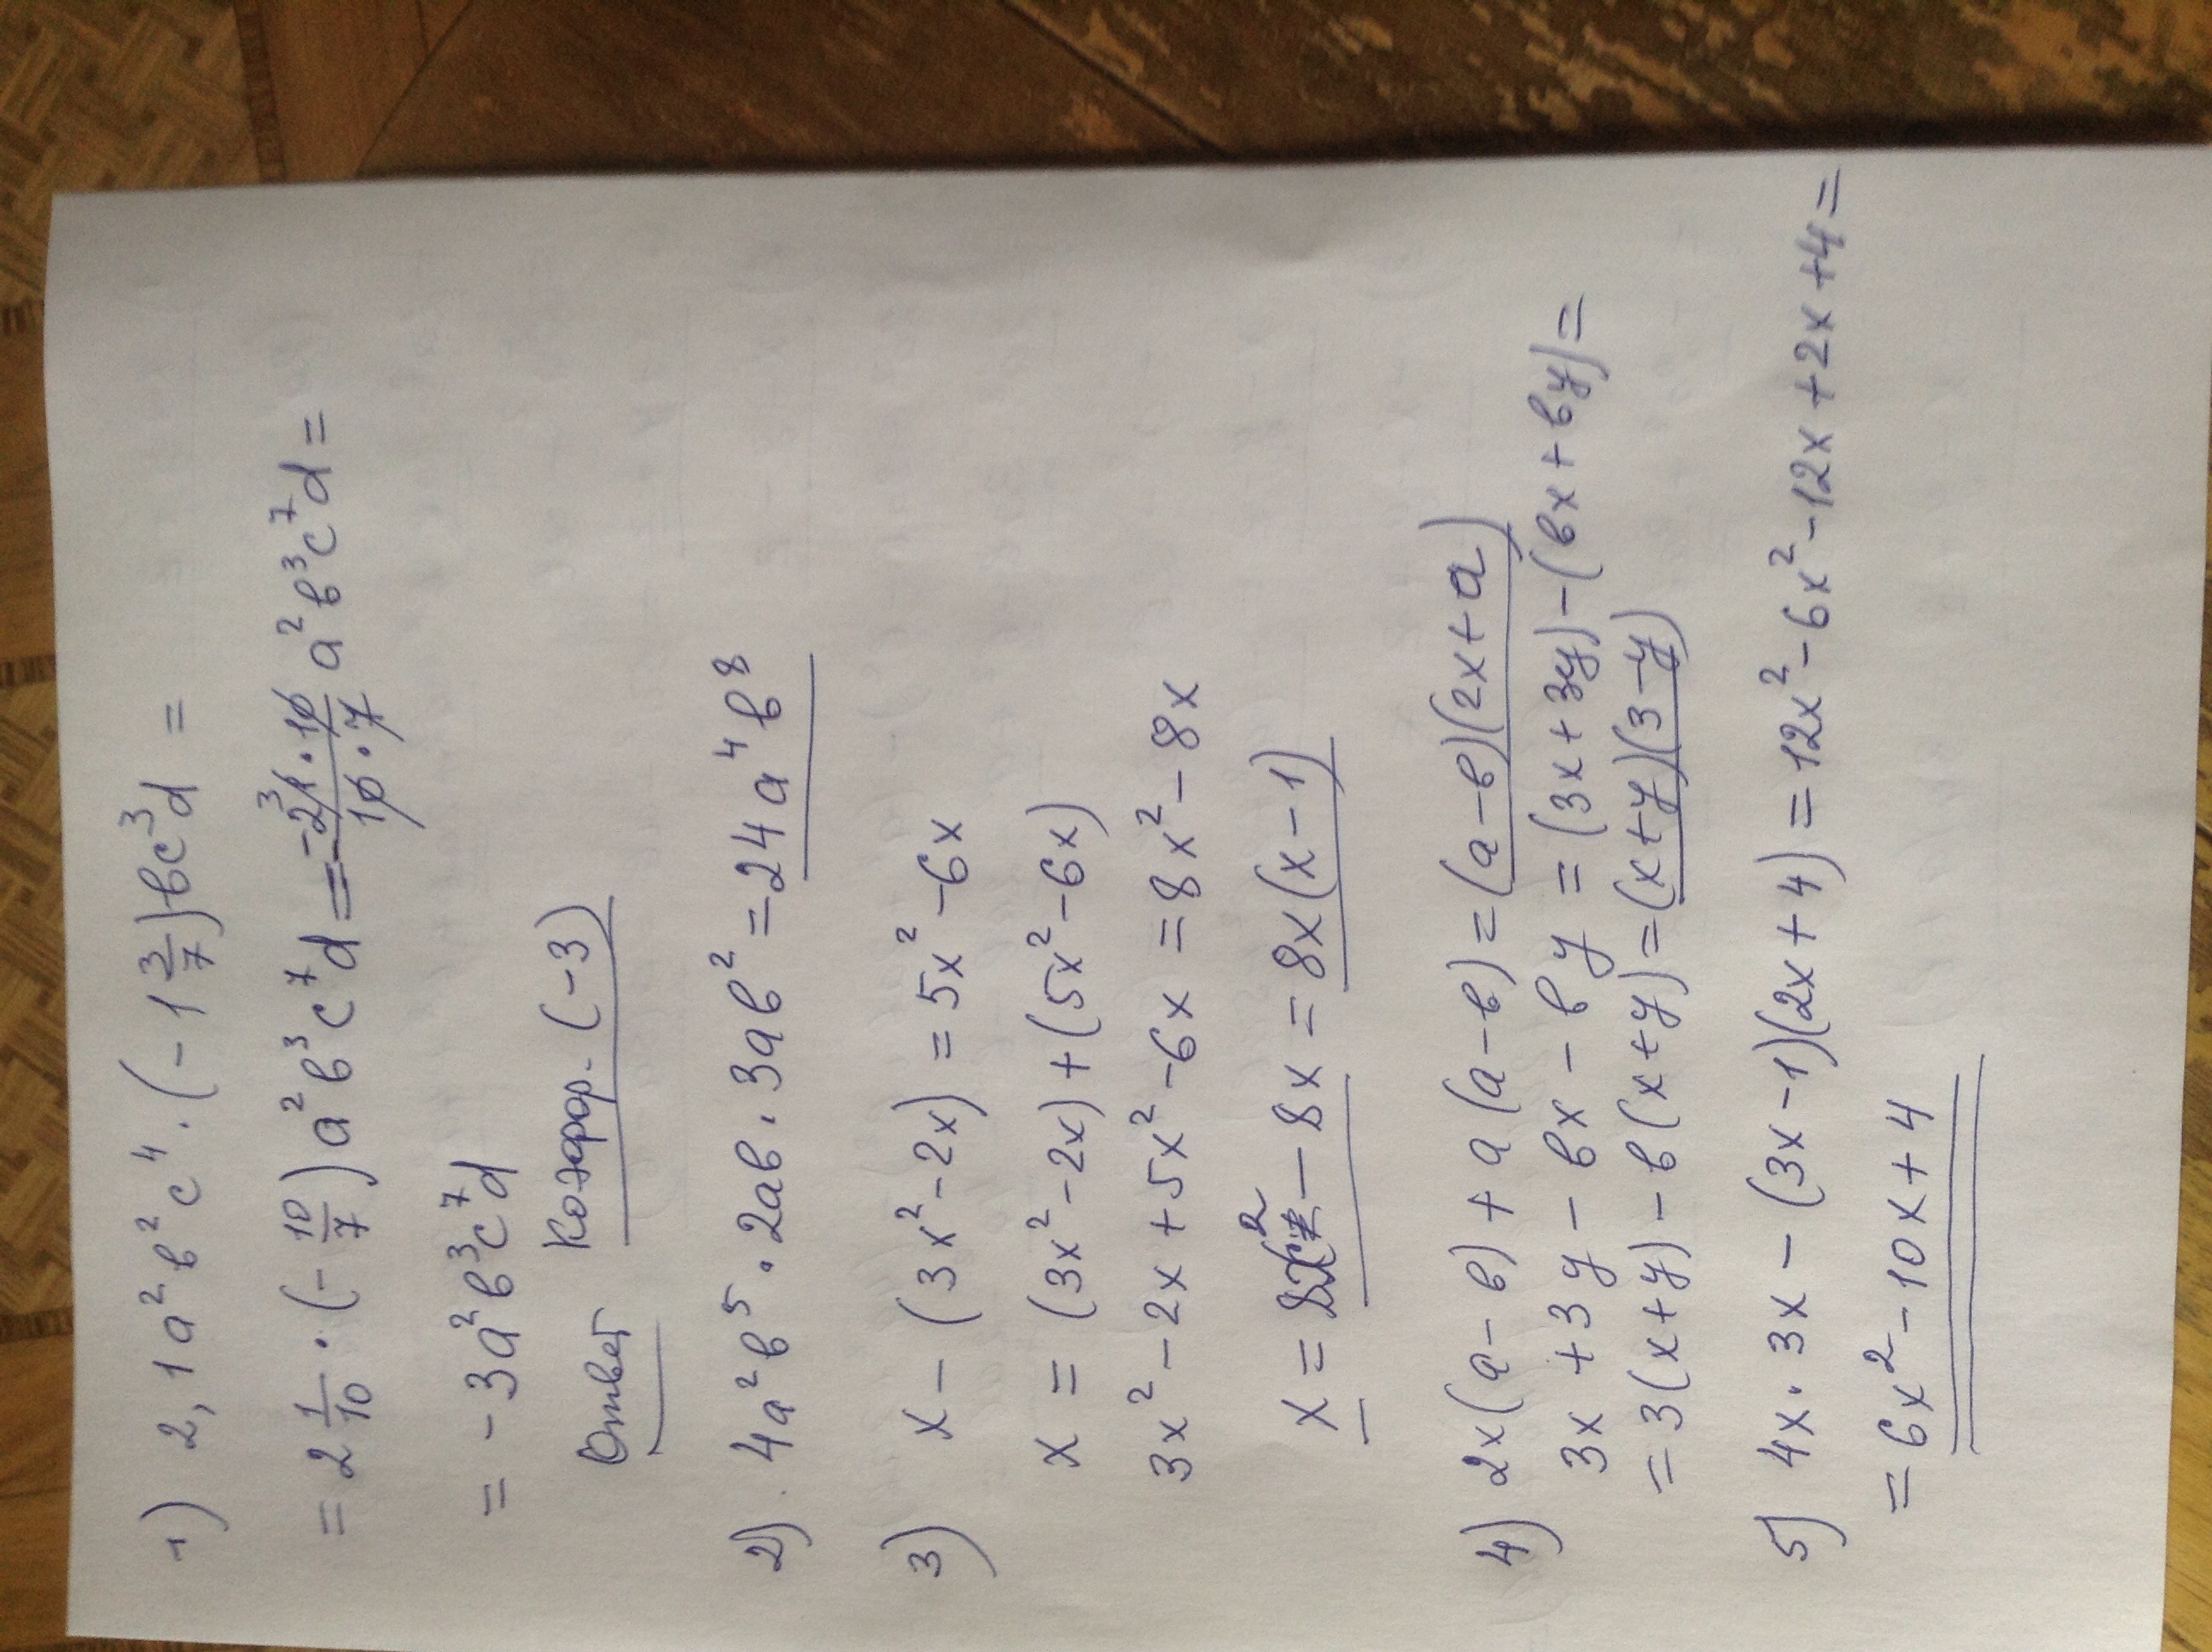 1) 2,1a²в²c⁴ · (-1 3/7)вc³d =
= 2 1/10 · (- 10/7)a²в³c⁷d = = -2̶1̶³·1̶0̶/1̶0̶·7̶ a²в³c⁷d =
= -3a²в³c⁷d
Ответ Коэффор. (-3)
2). 4a²в⁵ · 2aв · 3aв² = 24a⁴в⁸
3) x - (3x² - 2x) = 5x² - 6x
x = (3x² - 2x) + (5x² - 6x)
3x² - 2x + 5x² - 6x = 8x² - 8x
x = 8x² - 8x = 8x(x - 1)
4) 2x(a - в) + a(a - в) = (a - в)(2x + a)
3x + 3y - вx - вy = (3x + 3y) - (вx + вy) =
= 3(x + y) - в(x + y) = (x + y)(3 - y)
5) 4x · 3x - (3x - 1)(2x + 4) = 12x² - 6x² - 12x + 2x + 4 =
= 6x² - 10x + 4